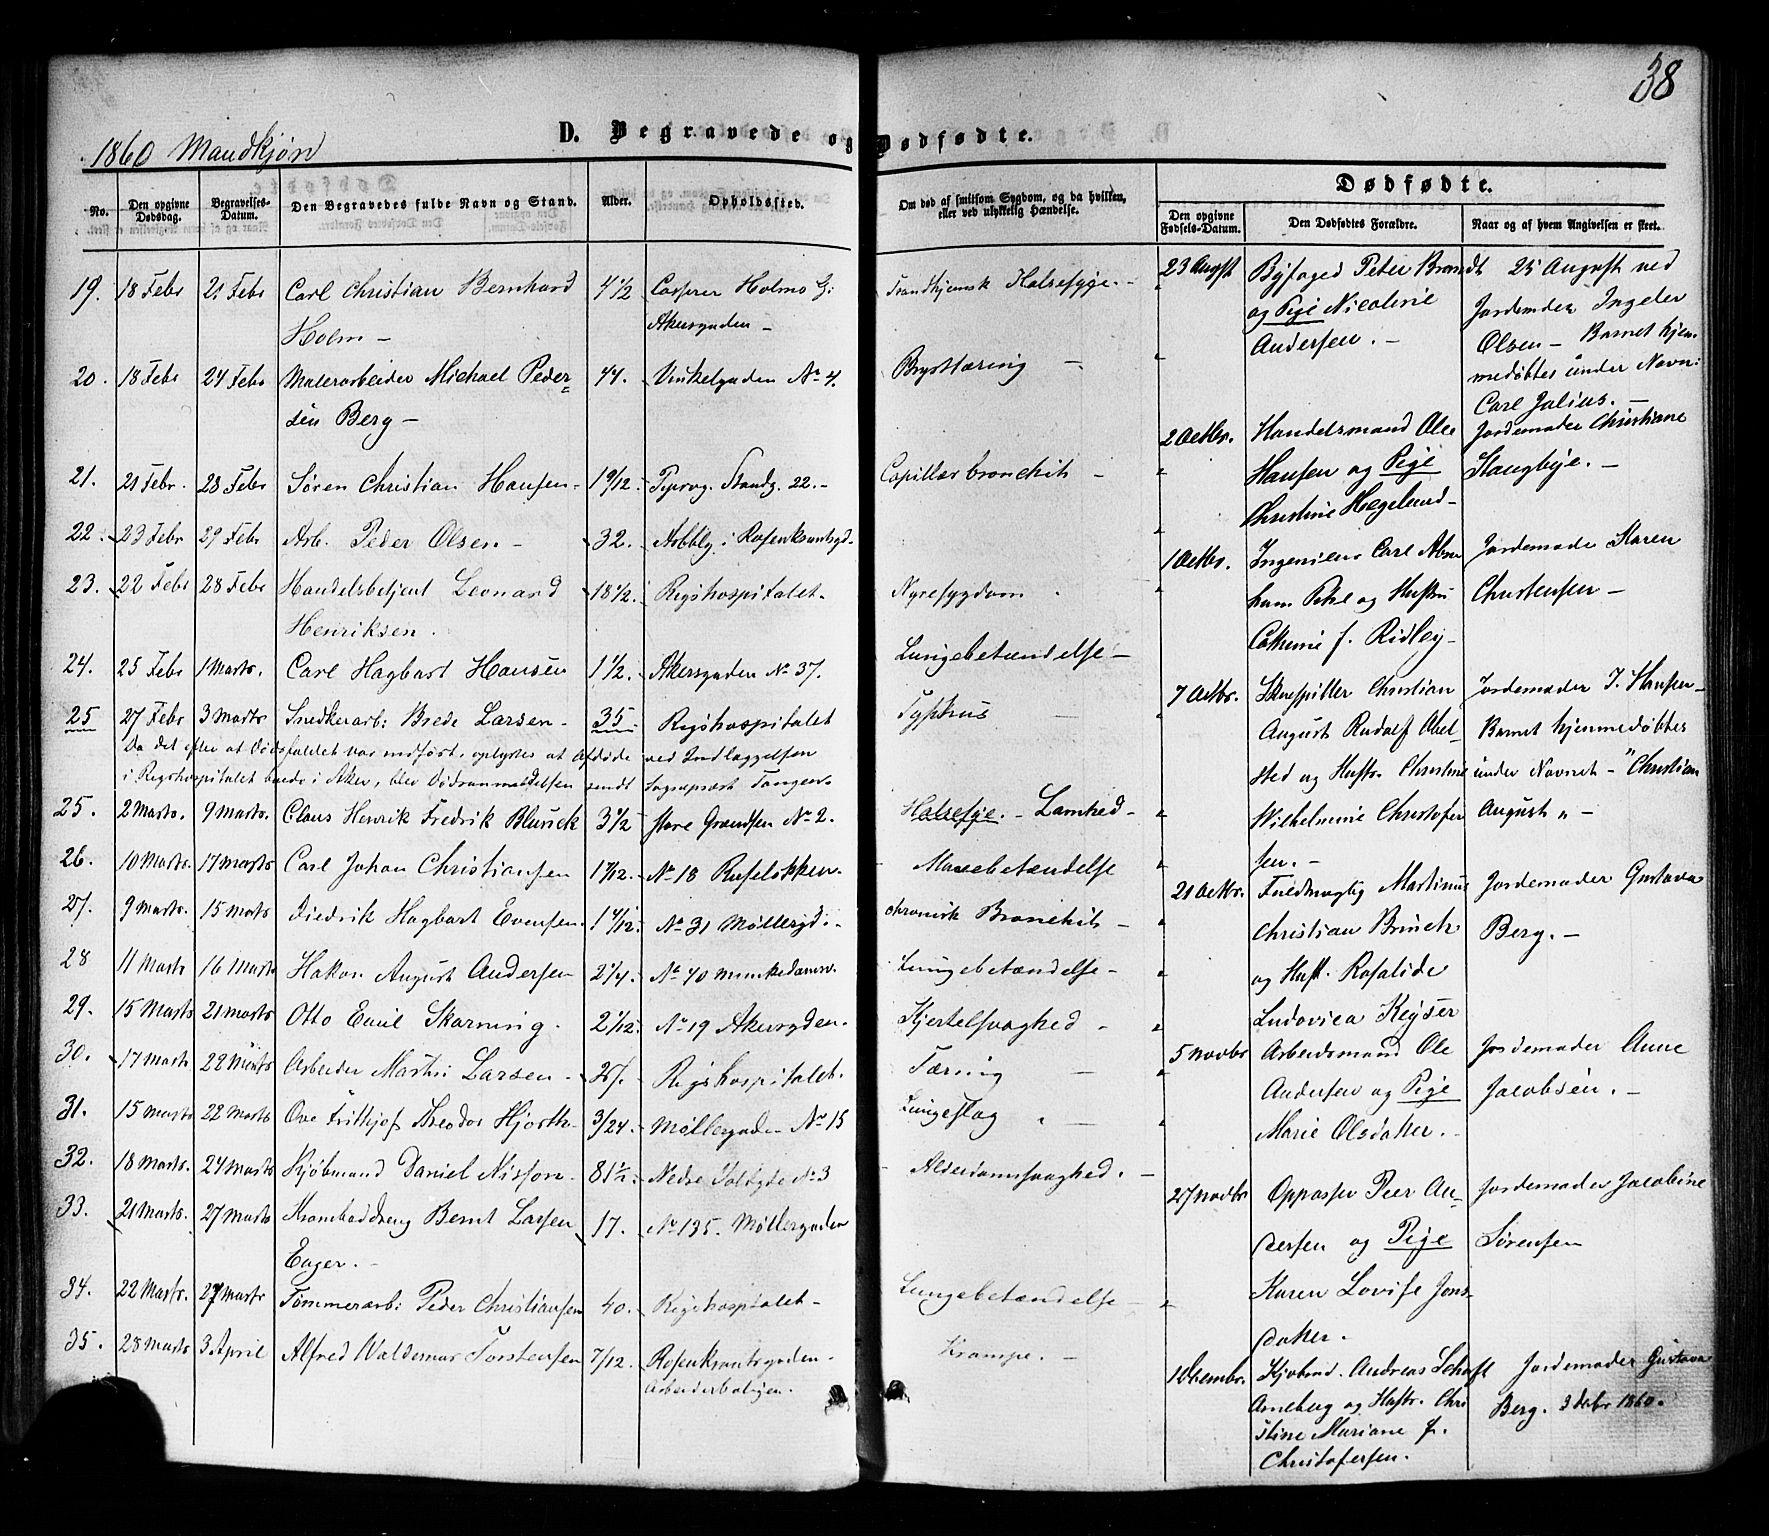 38
D. Begravede og Dødfødte.
1860 Mandkjøn
No.
Den opgivne Dødsdag.
Begravelses-Datum.
Den Begravedes fulde Navn og Stand.
Alder.
Opholdssted.
Om død af smitsom Sygdom, og da hvilken, eller ved ulykkelig Hændelse.
Dødfødte.
Den opgivne Fødsels-Datum.
Den Dødfødtes Forældre.
Naar og af hvem Angivelsen er skeet.
19. 18 Febr 21 Febr Carl Christian Bernhard 4 1/2 Holms G:
Holm - Akersgaden -
Halsesyge. -
20. 18 Febr 24 Febr Malerarbeider Michael Peder- 44. Vinkelgaden No 4. Brysttæring -
sen Berg -
21. 21 Febr. 28 Febr Søren Christian Hansen - 19/12. 22. - Capillærbronchit -
22. 23 Febr 29 Febr Arb. Peder Olsen - 32. i Rosenkrantzgd.
23. 22 Febr 28 Febr Handelsbetjent Leonard 18 1/2. Rigshospitalet. Nyresygdom
Henriksen.
24. 25 Febr 1 Marts. Carl Hagbart Hansen 1 1/2. Akersgaden No 37. Lungebetændelse -
25 27 Febr 3 Marts Snedkerarb: Brede Larsen - 35 Rigshospitalet Typhus -
Da det efter at Dødsfaldet var indført, oplystes at Afdøde ved Indlæggelsen
i Rigshospitalet boede i Aker, blev Dødsanmeldelsen sendt Sogneprest Tangen.
25. 2 Marts. 9 Marts. Claus Henrik Fredrik 3 1/2 Store Grændsen No 2. Halsesyge. - Lamhed -
26. 10 Marts. 17 Marts Carl Johan Christiansen No 18 Ruseløkken. Mavebetændelse
27. 9 Marts. 15 Marts Diedrik Hagbart Evensen. 1 4/12. No 31 Møllergd: - chronisk Bronchit -
28 11 Marts 16 Marts Hakon August Andersen 2 1/4. No 40 Munkedamsv. Lungebetændelse -
29. 15 Marts 21 Marts Otto Emil Skarning. 2 1/12. No 19 Akersgden. Kjertelsvaghed -
30. 17 Marts 22 Marts Arbeider Martin Larsen - 27. Rigshospitalet. Tæring -
31. 15 Marts 22 Marts Ove Frithjof Theodor Hjorth. 3/24. Møllergaden No 15 Lungeslag -
32. 18 Marts. 24 Marts Kjøbmand Daniel Nisson. 81 1/2. Nedre No 3 Alderdomssvaghed. -
33. 21 Marts. 27 Marts Kramboddreng Bernt Larsen 17. No 135. Møllergaden
Enger. -
34. 22 Marts. 27 Marts Tømmerarb: Peder Christiansen 40. Rigshospitalet - Lungebetændelse -
35. 28 Marts 3 April Alfred Waldemar Torstensen 7/12. Rosenkrantzgaden - Krampe. -
Arbeiderboligen.
23 August Byfoged Peter Brandt 25 August ved
og Pige Nicoline Jordemoder Ingeler
Andersen. - Olsen - Barnet hjem-
medøbtes under Navn:
Carl Julius. -
2 Octbr. Handelsmand Ole Jordemoder Christiane
Hansen og Pige Haugbye. -
Christine Hægelund -
1 Octbr. Ingenieur Carl Abra Jordemoder Karen
ham Pihl og Hustru Christensen -
Catherine f. Ridley -
7 Octbr. Skuespiller Christian Jordemoder J. Hansen -
August Rudolf Abel- Barnet hjemmedøbtes
sted og Hustr. Christine under Navnet - "Christian
Wilhelmine Christofer August" -
sen. -
21 Octbr. Fuldmægtig Martinus Jordemoder Gustava
Christian Brinch Berg. -
og Hust. Rosalide
Ludovica Keyser
5 Novbr Arbeidsmand Ole Jordemoder Anne
Andersen og Pige Jacobsen. -
Marie Olsdatter. -
27 Novbr Oppasser Peer An- Jordemoder Jacobine
dersen og Pige Sørensen
Karen Lovise Jons-
datter.
1 Decembr. Kjøbmd. Andreas Jordemoder Gustava
Arneberg og Hustr. Chri Berg. 3 Decbr 1860.
stine Mariane f.
Christofersen.